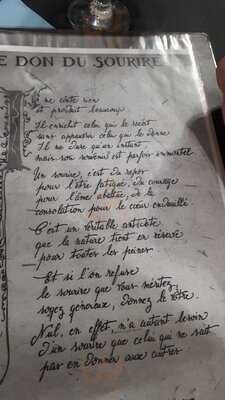 E DON DU SOURIRE
Il ne coûte rien
et produit beaucoup
Il enrichit celui qui le reçoit
sans appauvrir celui qui le donne
Il ne dure qu'un instant
mais son souvenir est parfois immortel
Un sourire, c'est du repos
pour l'être fatigué, du courage
pour l'âme abattue, de la
consolation pour le cœur endeuillé
C'est un véritable antidote
que la nature tient en réserve
pour toutes les peines
Et si l'on refuse
le sourire que vous méritez,
soyez généreux, donnez le vôtre.
Nul, en effet, n'a autant besoin
d'un sourire que celui qui ne sait
pas en donner aux autres